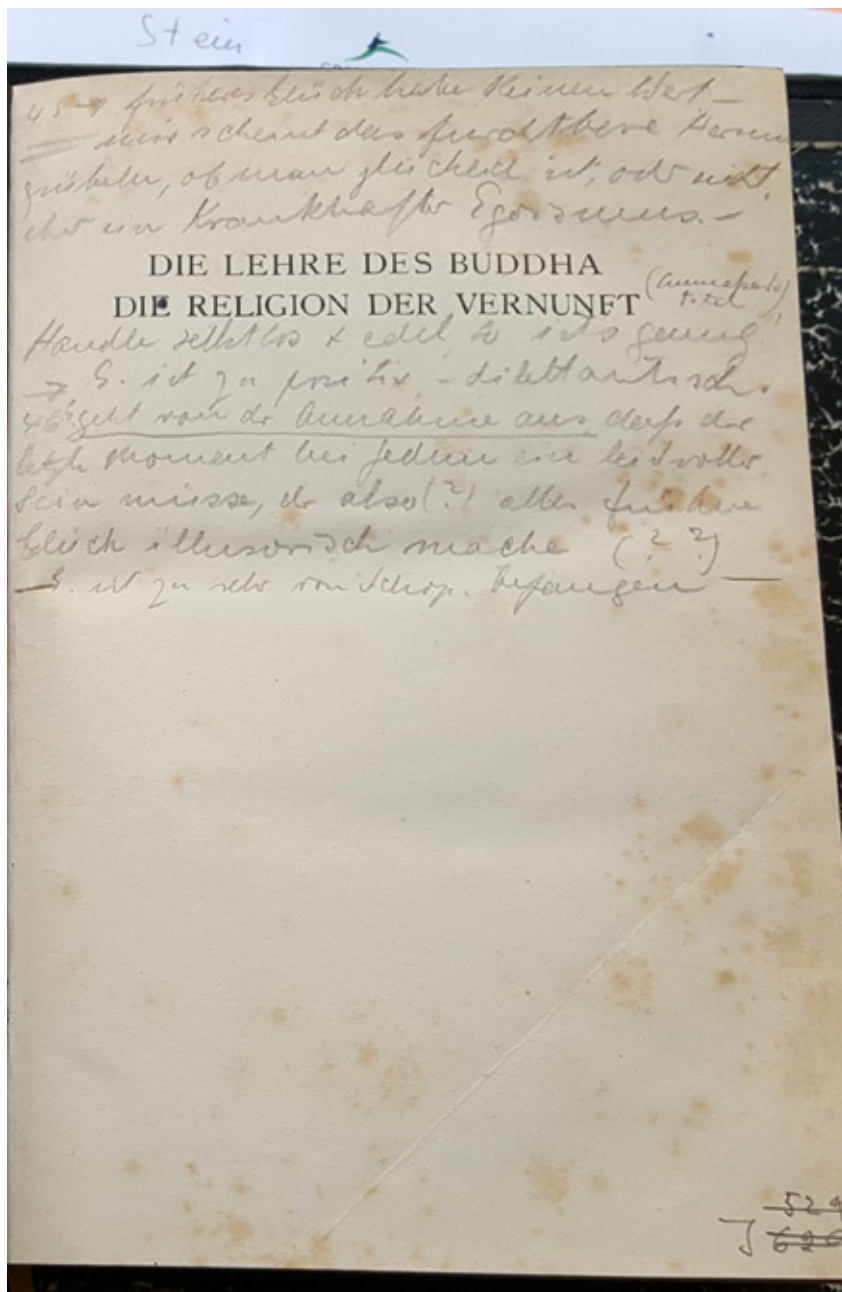 Stein
45 → früheres Glück habe keinen Wert –
mir scheint das furchtbare Herum
grübeln, ob man glücklich ist, oder nicht,
eher ein Krankhafter Egoismus. –
DIE LEHRE DES BUDDHA
DIE RELIGION DER VERNUNFT
titel
Handle selbstlos & edel, so ists genug
→ G. ist zu positiv, – dilettantisch
46 geht von der Annahme aus, daß der
letzte Moment bei jedem ein leidvoller
sein müsse, der also (?) alles frühere
Glück illusorisch mache (??)
– G. ist zu sehr von Schop. befangen –
J 529
626